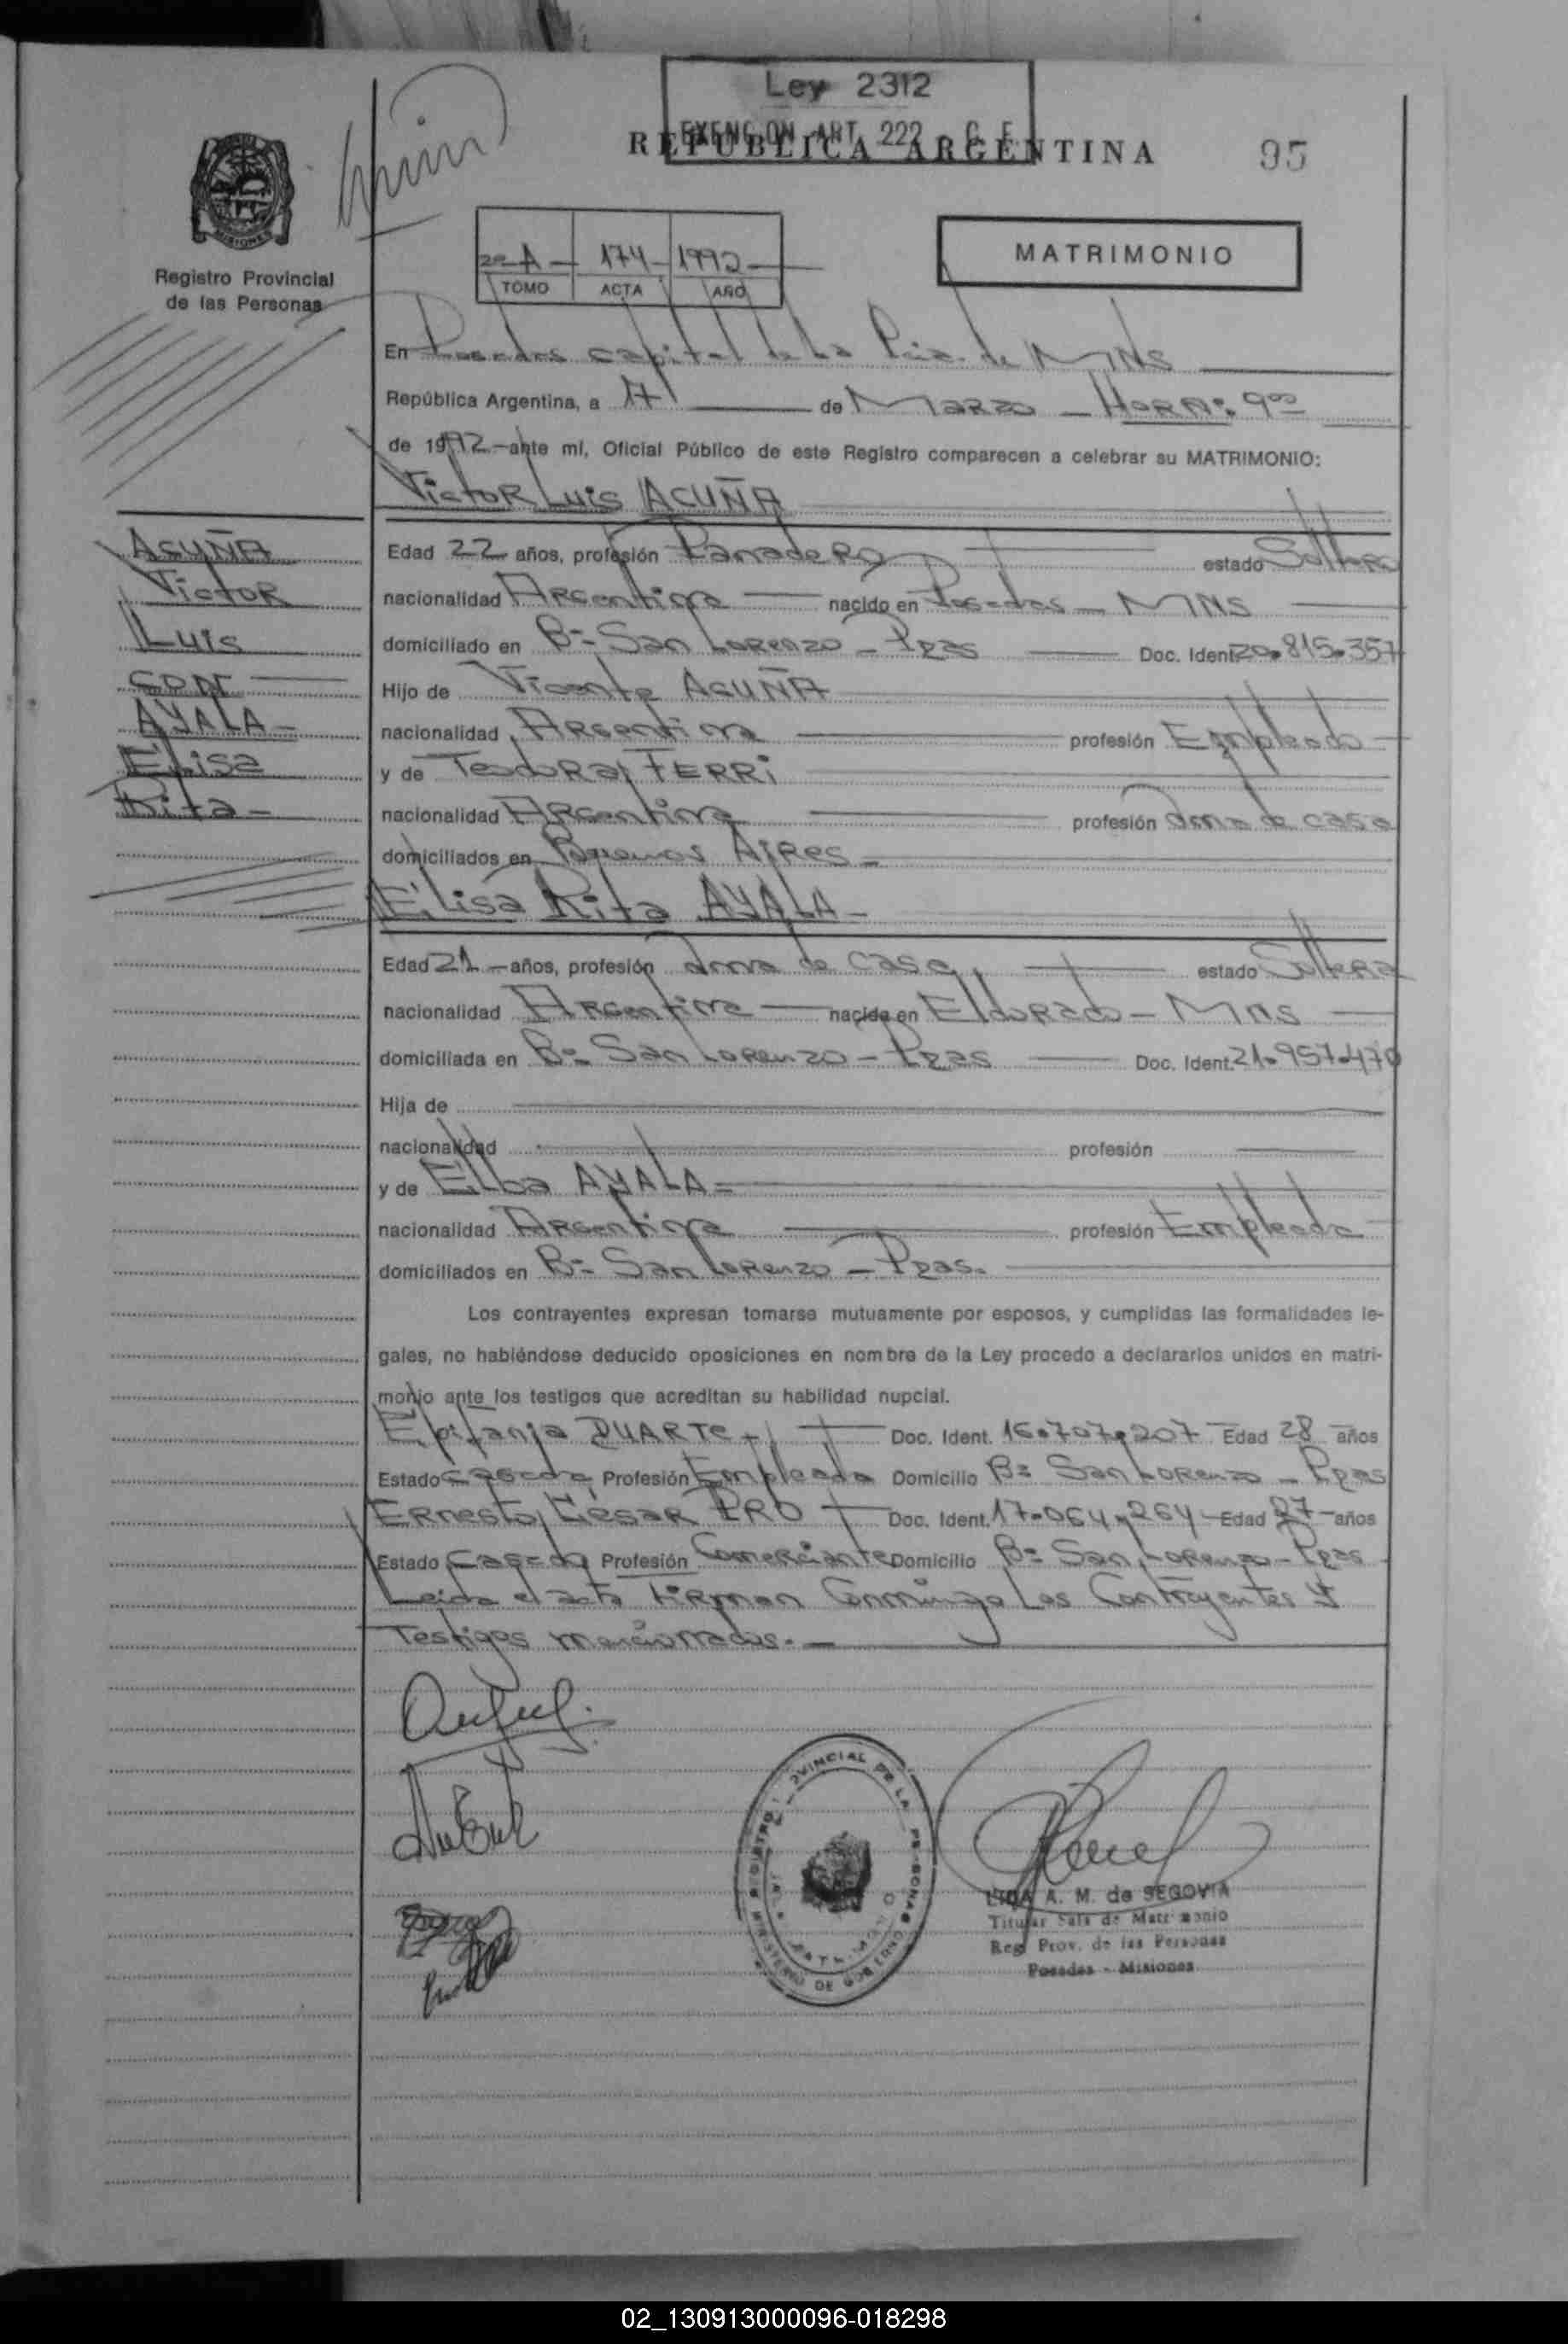 Ley 2312
EXENCION ART. 222 C. F.
REPUBLICA ARGENTINA
95
MISIONES
Registro Provincial
de las Personas
A - 174 - 1992 -
TOMO ACTA AÑO
MATRIMONIO
En Posadas capital de la Pcia. de MNS
República Argentina, a 17 de Marzo - HORA: 9 00
de 1992 - ante mí, Oficial Público de este Registro comparecen a celebrar su MATRIMONIO:
Victor Luis ACUÑA
ACUÑA
Victor
Luis
CON
AYALA -
Elisa
Rita -
Edad 22 años, profesión Panadero estado Soltero
nacionalidad Argentina nacido en Posadas - MNS
domiciliado en Bº San Lorenzo - Pdas Doc. Ident. 20.815.357
Hijo de Vicente ACUÑA
nacionalidad Argentina profesión Empleado
y de Teodora FERRI
nacionalidad Argentina profesión Ama de casa
domiciliados en Buenos Aires -
Elisa Rita AYALA -
Edad 21 - años, profesión Ama de casa estado Soltera
nacionalidad Argentina nacida en Eldorado - MNS
domiciliada en Bº San Lorenzo - Pdas Doc. Ident. 21.957.470
Hija de
nacionalidad profesión
y de Elba AYALA -
nacionalidad Argentina profesión Empleada
domiciliados en Bº San Lorenzo - Pdas.
Los contrayentes expresan tomarse mutuamente por esposos, y cumplidas las formalidades le-
gales, no habiéndose deducido oposiciones en nombre de la Ley procedo a declararlos unidos en matri-
monio ante los testigos que acreditan su habilidad nupcial.
Epifania DUARTE - Doc. Ident. 16.707.207 Edad 28 años
Estado casada Profesión Empleada Domicilio Bº San Lorenzo - Pdas
Ernesto César PRO Doc. Ident. 17.064.264 - Edad 27 - años
Estado Casado Profesión Comerciante Domicilio Bº San Lorenzo - Pdas
Leida el acta Firman Conmigo Los Contrayentes Y
Testigos mencionados. -
REGISTRO PROVINCIAL DE LA PERSONAS
MINISTERIO DE GOBIERNO
LIDA A. M. de SEGOVIA
Titular Sala de Matrimonio
Reg. Prov. de las Personas
Posadas - Misiones
02_130913000096-018298